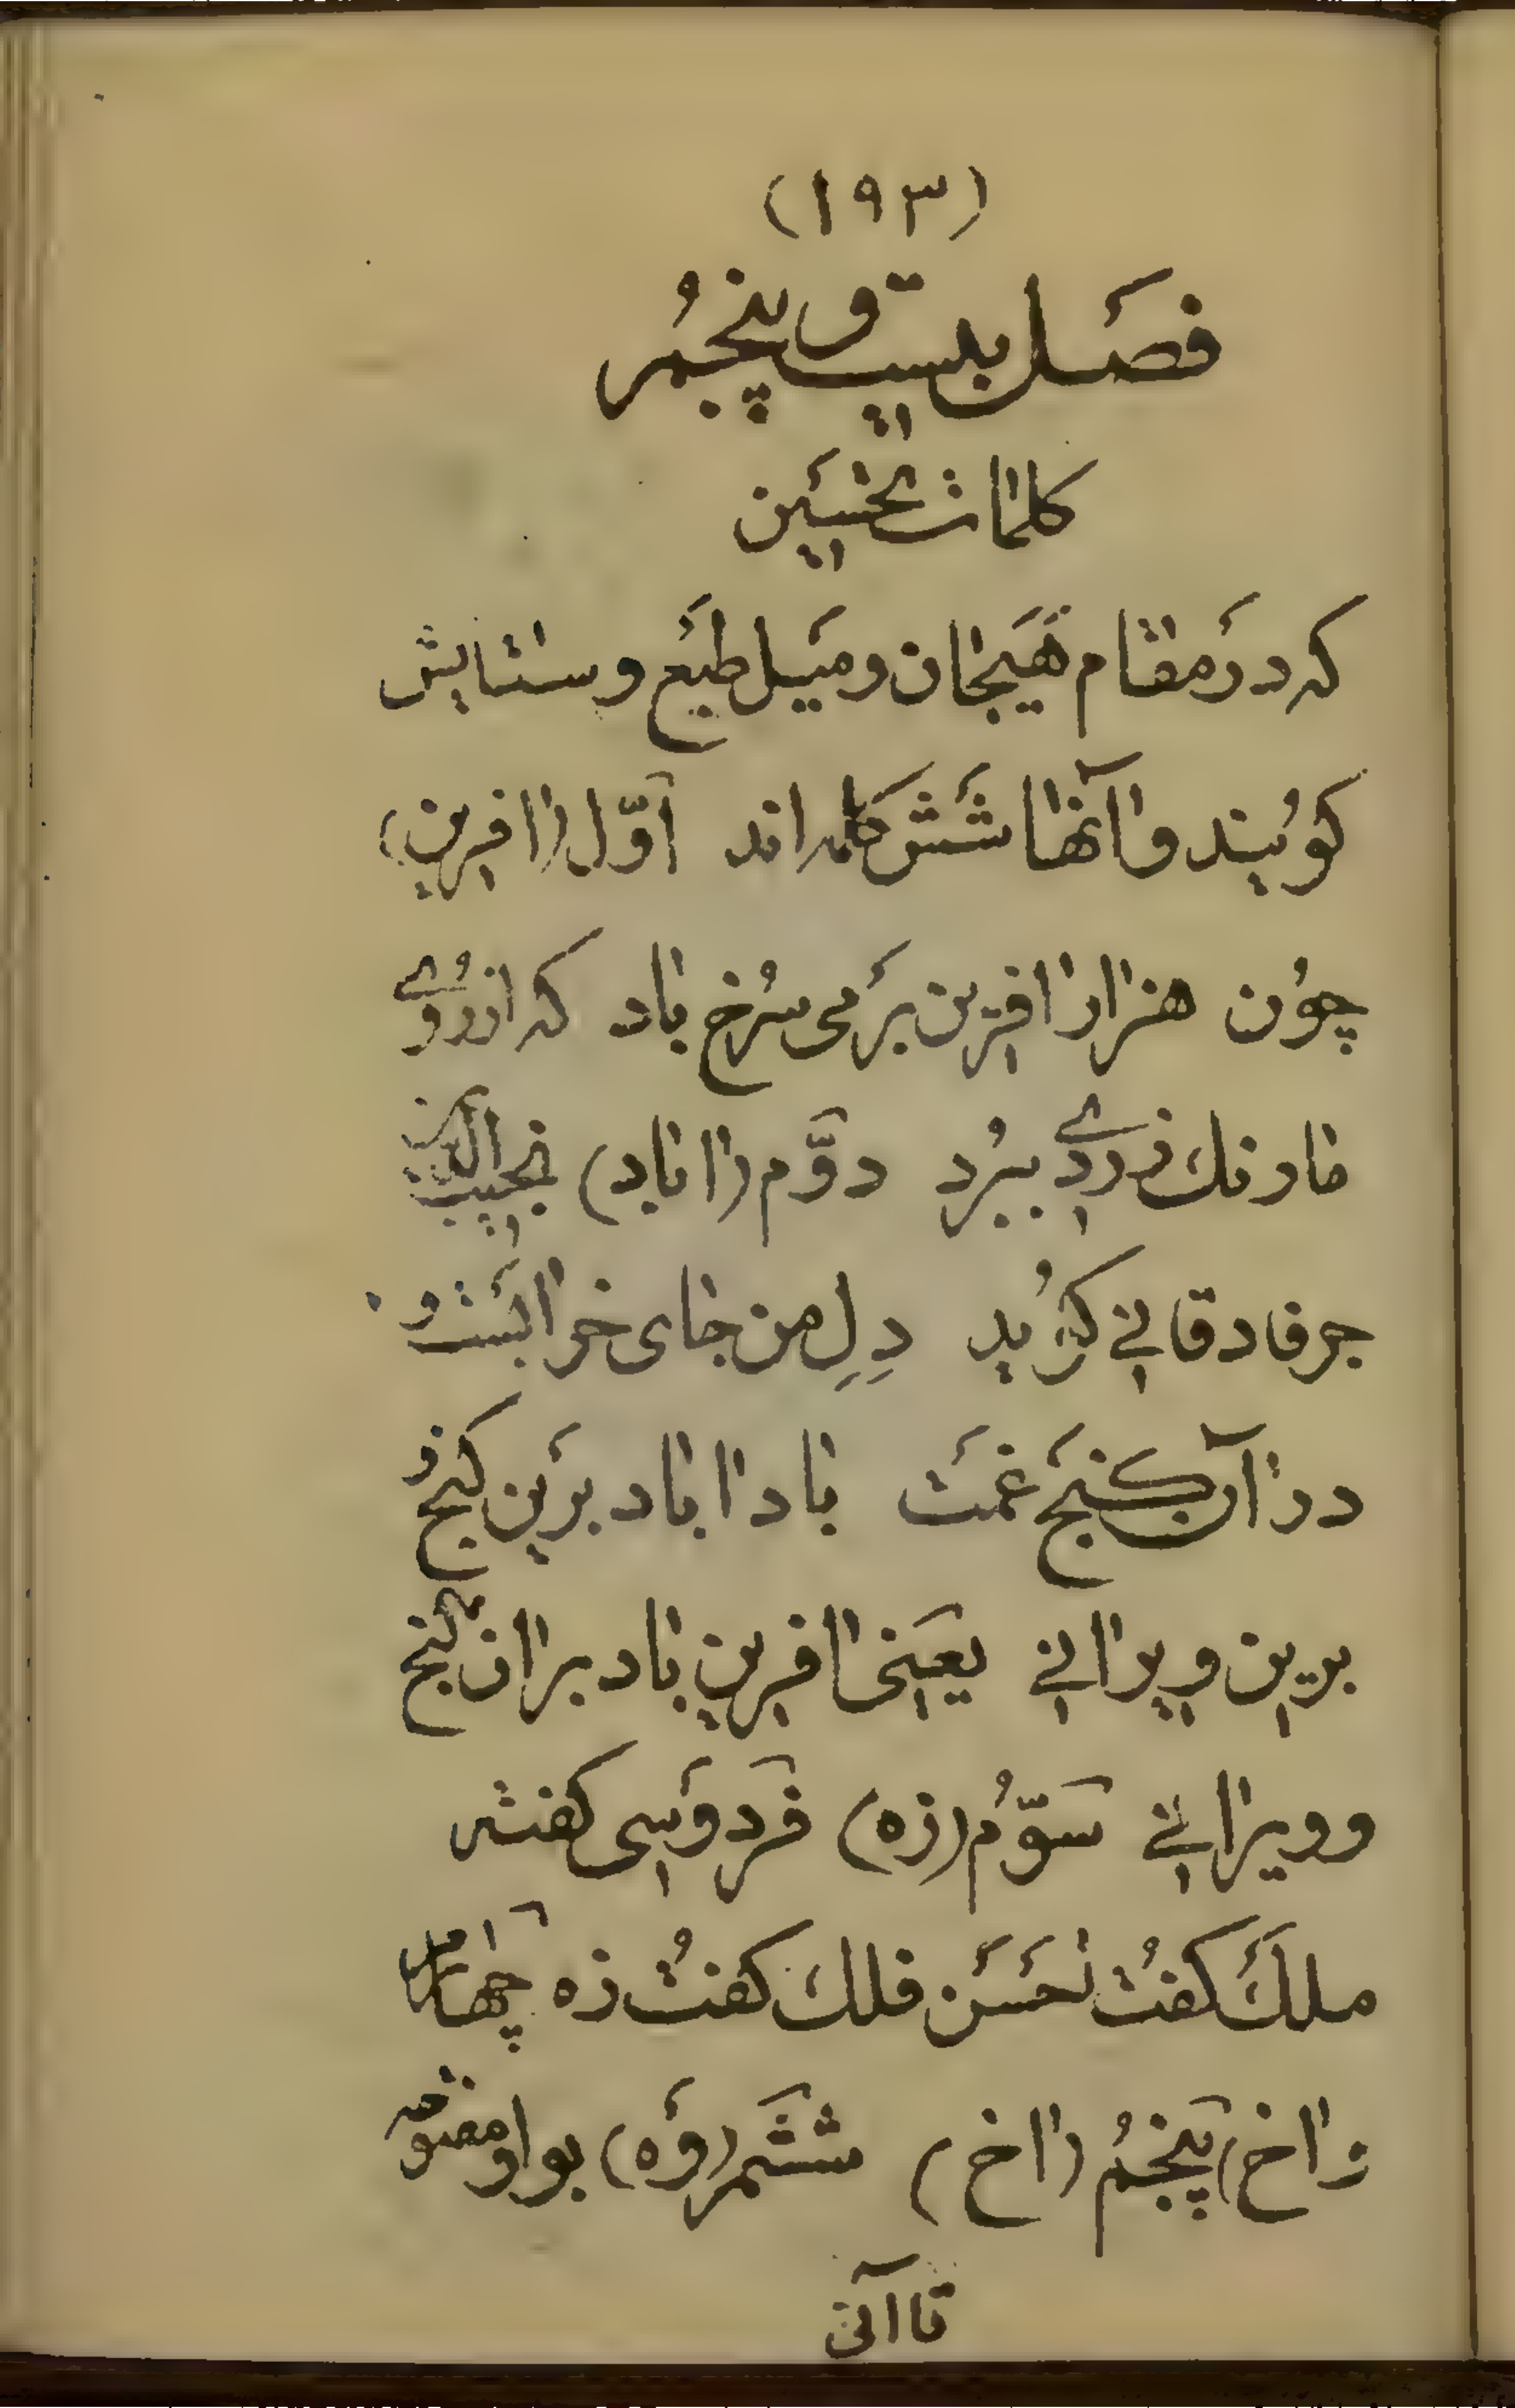 (۱۹۳)
فصَل بیست و پنجمُ
کلمات تحسَین
که درَ مقام هَیَجان و میَل طبَع و ستایش
کویُند و آنها شَش کلمه اند اوّل (افرین)
چوُن هزار افرین برَ می سرُخ باد که از روُے
ما رنك زردے ببرُد دوَّم (اباد) نجیب الدین
جرفادقانے کوُید دِلِ من جای خرابیسَت و
در آن کنجَ غمَت باد اباد برَین کنج و
برین ویرانے یعَنی افرین باد بر ان کنج
و ویرانے سَوّمُ (زه) فرَدوَسی کفته
ملَك کفُت احَسَن فلك کفُت زه چهَارم
(اخ) پَنجمُ (اخ) ششَم (وَه) بواو مفتوحه
قاآنی